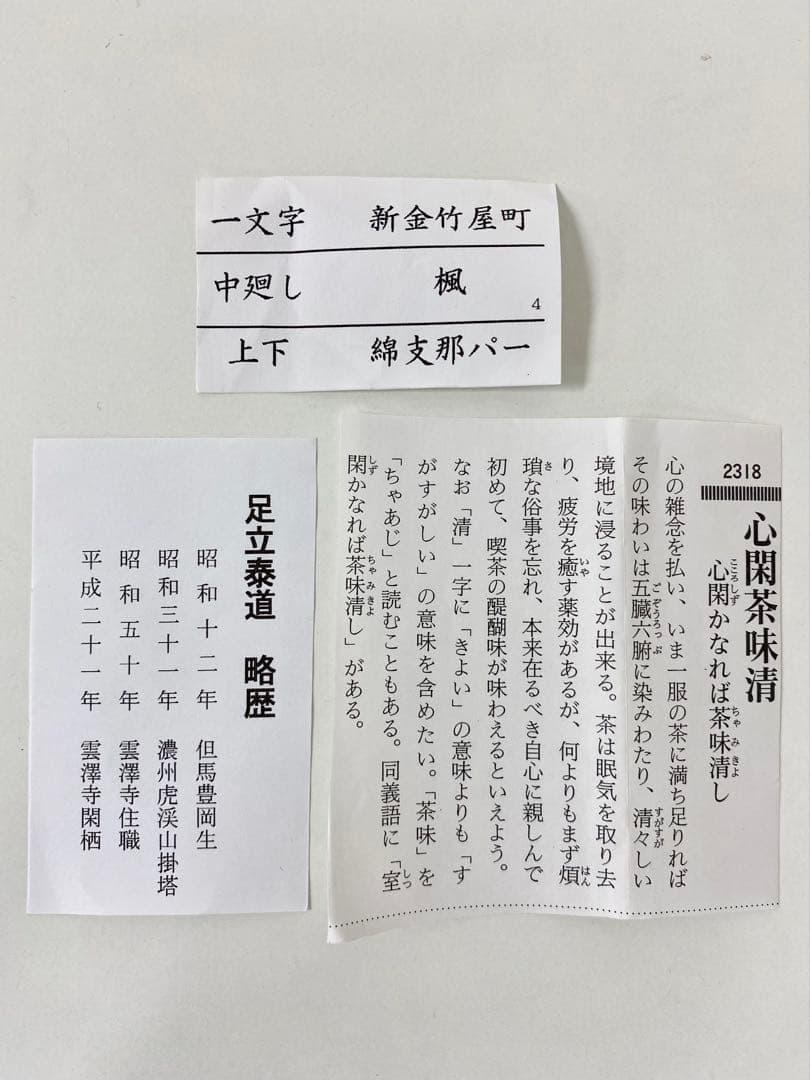 一文字　新金竹屋町
中廻し　楓
4
上下　綿支那パー
2318
心閑茶味清
心閑かなれば茶味清し
こころしず
ちゃみきよ
心の雑念を払い、いま一服の茶に満ち足りれば
その味わいは五臓六腑に染みわたり、清々しい
ごぞうろっぷ
すがすが
境地に浸ることが出来る。茶は眠気を取り去
り、疲労を癒す薬効があるが、何よりもまず煩
いや
はん
瑣な俗事を忘れ、本来在るべき自心に親しんで
さ
初めて、喫茶の醍醐味が味わえるといえよう。
なお「清」一字に「きよい」の意味よりも「す
がすがしい」の意味を含めたい。「茶味」を
「ちゃあじ」と読むこともある。同義語に「室
しつ
閑かなれば茶味清し」がある。
しず
ちゃみきよ
足立泰道　略歴
昭和十二年　但馬豊岡生
昭和三十一年　濃州虎渓山掛塔
昭和五十年　雲澤寺住職
平成二十一年　雲澤寺閑栖